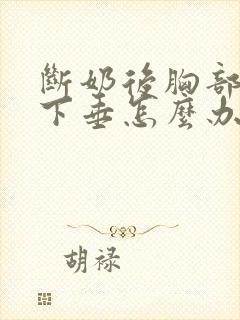 斷奶後胸部
下垂怎麼办
胡禄